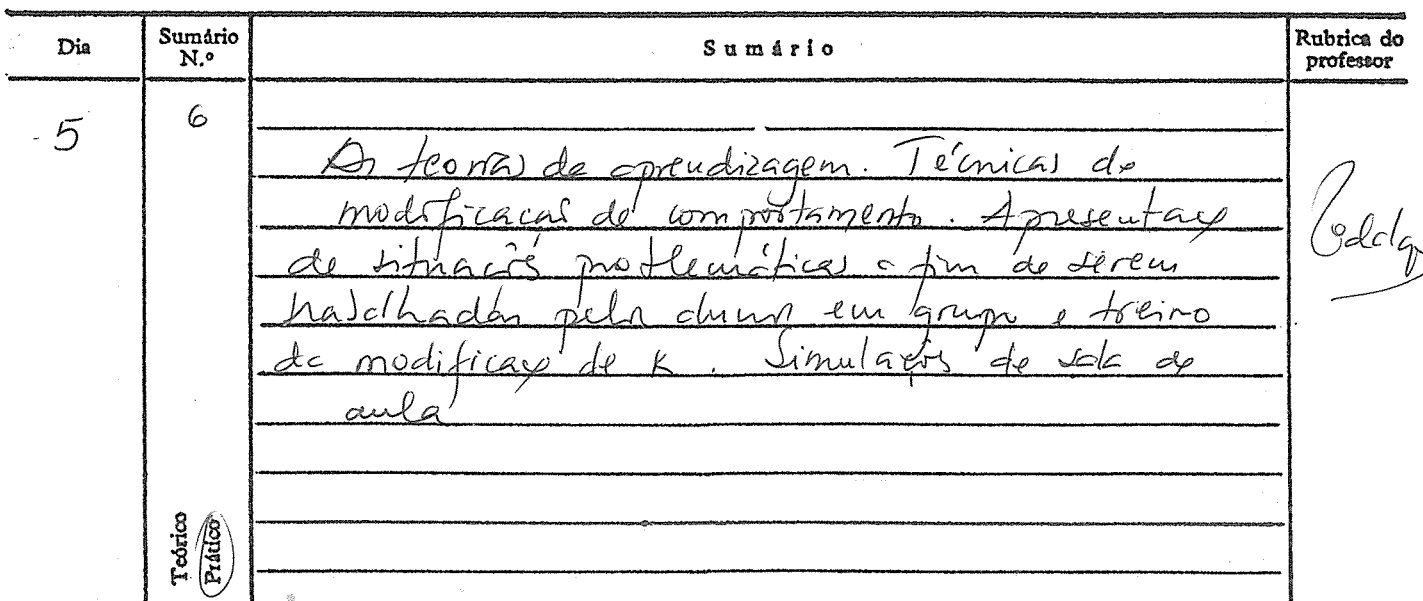 Dia
Sumário N.º
Sumário
Rubrica do professor
5
6
As teorias de aprendizagem. Técnicas de
modificacas de comportamento. Apresentaç
de situacões problemáticas a fim de serem
trabalhadas pelos alunos em grupo e treino
de modificaç de K. Simulações de sala de
aula
Teórico
Prático